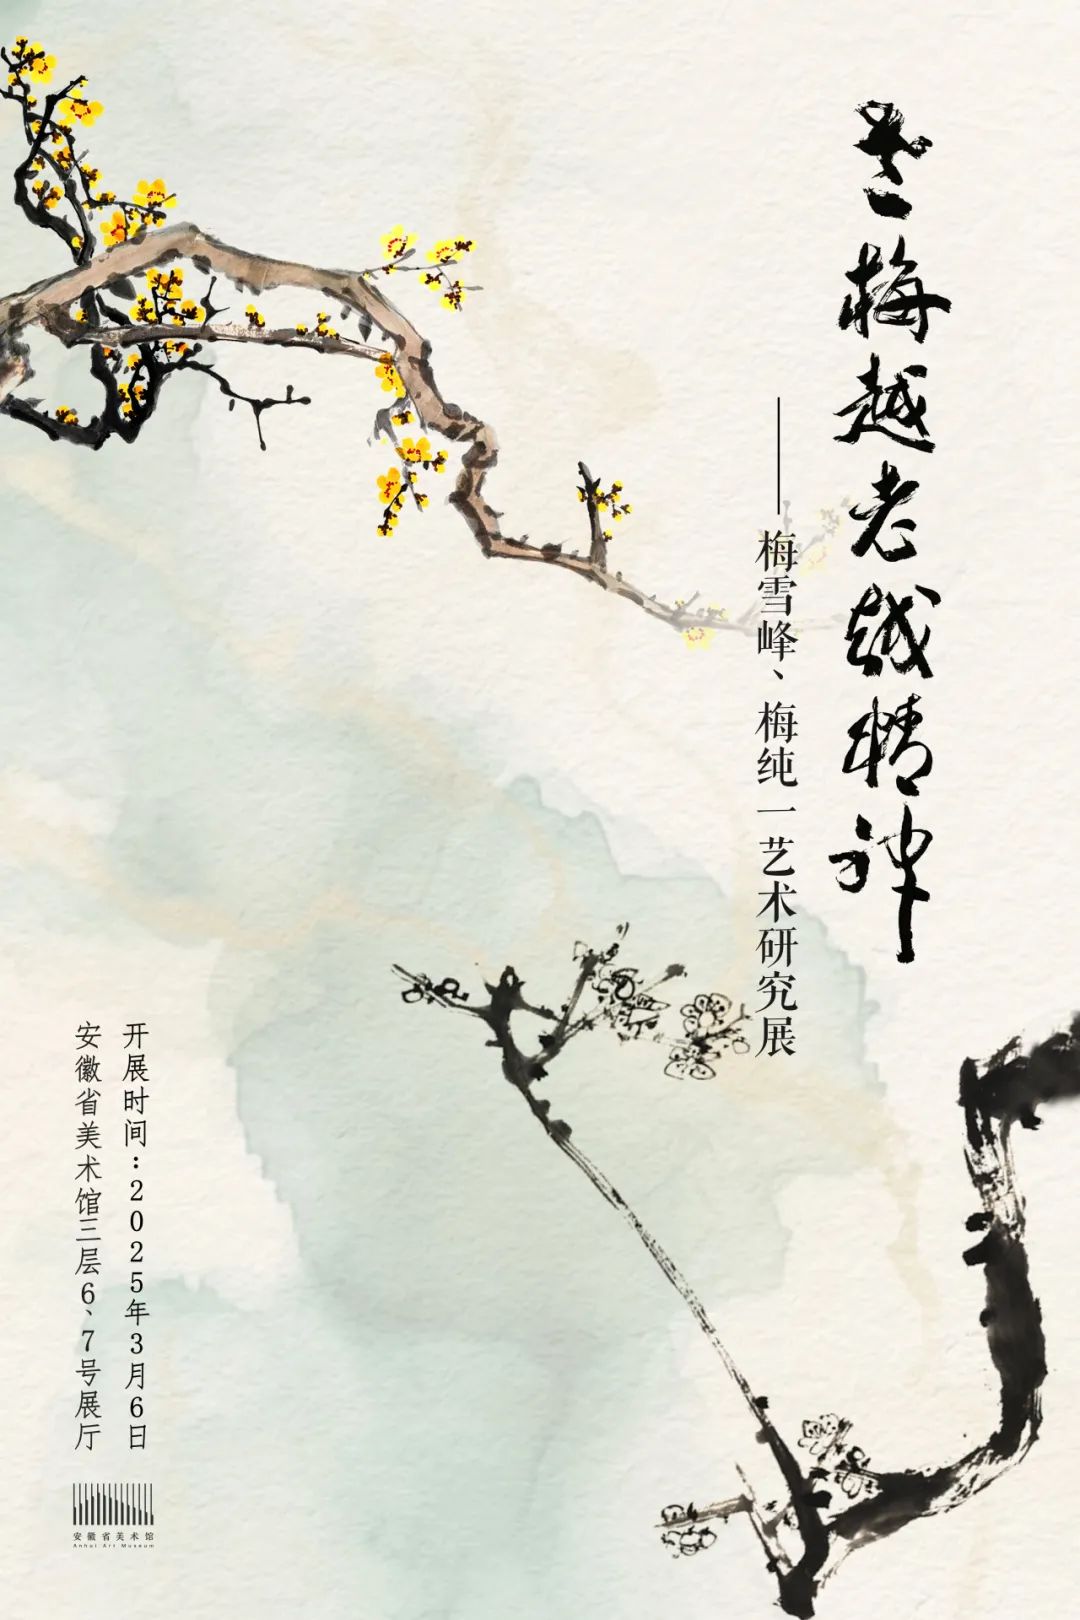 老梅越老越精神
——梅雪峰、梅纯一艺术研究展
开展时间：2025年3月6日
安徽省美术馆三层6、7号展厅
安徽省美术馆
Anhui Art Museum